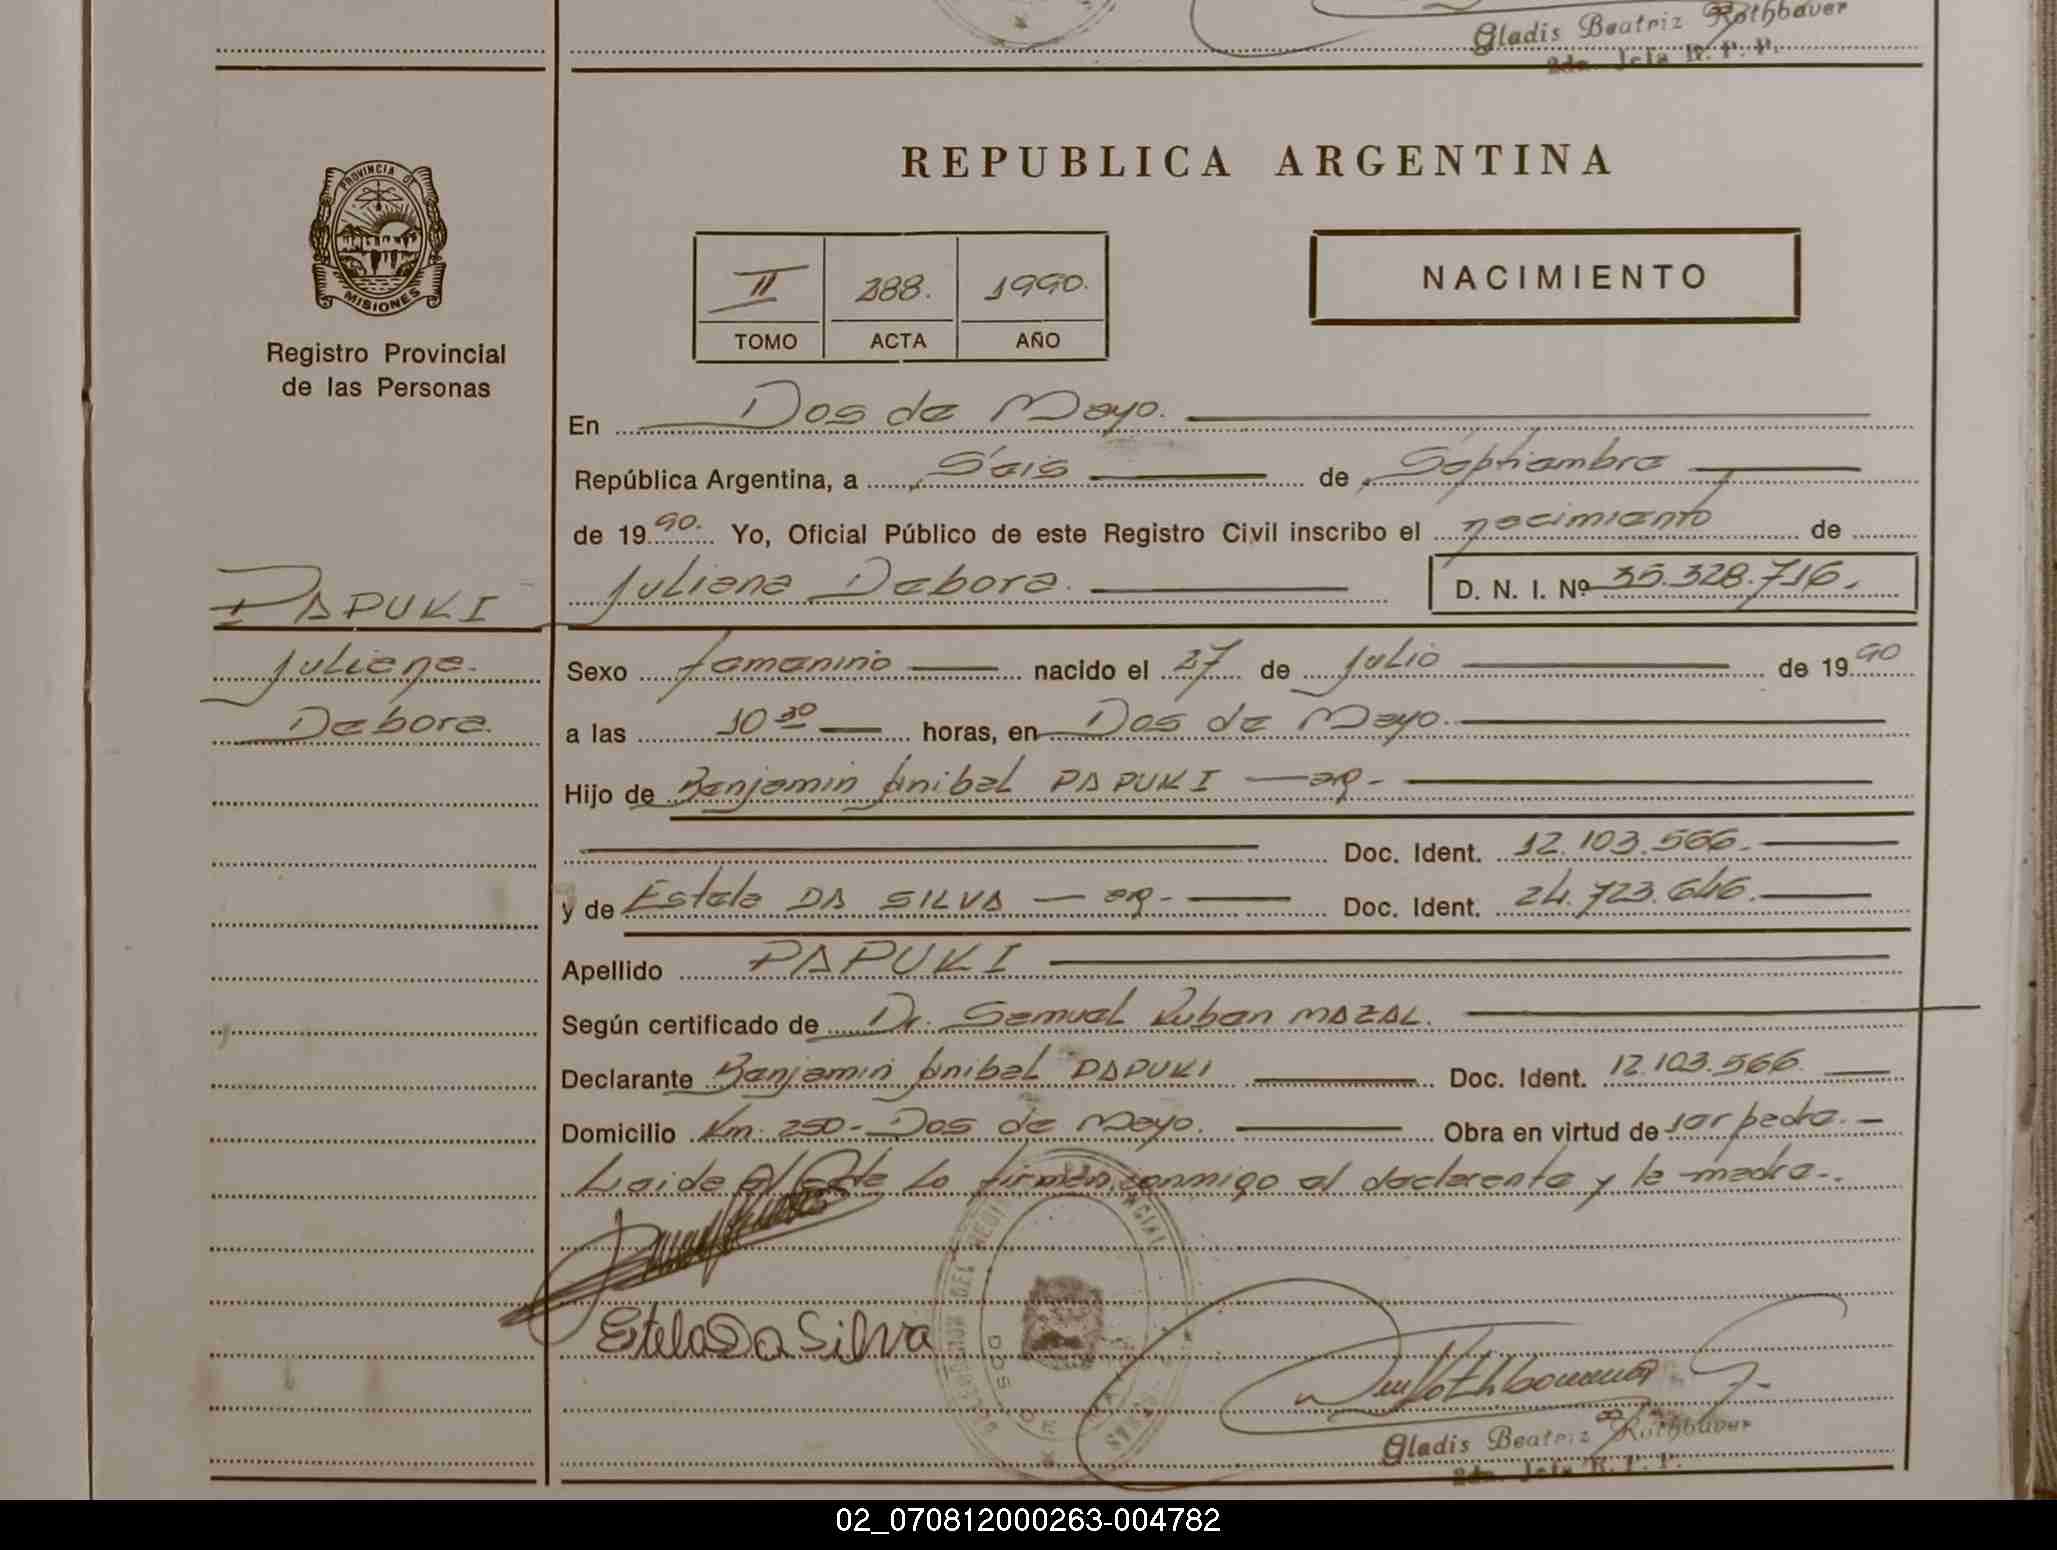 Gladis Beatriz Rothbauer
2da. Jefa R. P. P.
PROVINCIA DE
MISIONES
Registro Provincial
de las Personas
REPUBLICA ARGENTINA
II 288. 1990.
TOMO ACTA AÑO
NACIMIENTO
En Dos de Mayo.
República Argentina, a Seis de Septiembre
de 1990. Yo, Oficial Público de este Registro Civil inscribo el nacimiento de
Juliana Debora. D. N. I. Nº 35.328.716.
PAPUKI
Juliana
Debora.
Sexo femenino nacido el 27 de Julio de 1990
a las 10 30 horas, en Dos de Mayo.
Hijo de Benjamin Anibal PAPUKI - ar -
Doc. Ident. 12.103.566.
y de Estela DA SILVA - ar - Doc. Ident. 24.723.646.
Apellido PAPUKI
Según certificado de Dr. Samuel Ruben MAZAL.
Declarante Benjamin Anibal PAPUKI Doc. Ident. 12.103.566.
Domicilio Km. 250 - Dos de Mayo. Obra en virtud de ser padre. -
Leida el Acta lo firman conmigo el declarante y la madre. -
Estela Da Silva
DOS DE
Gladis Beatriz Rothbauer
2da. Jefa R. P. P.
02_070812000263-004782